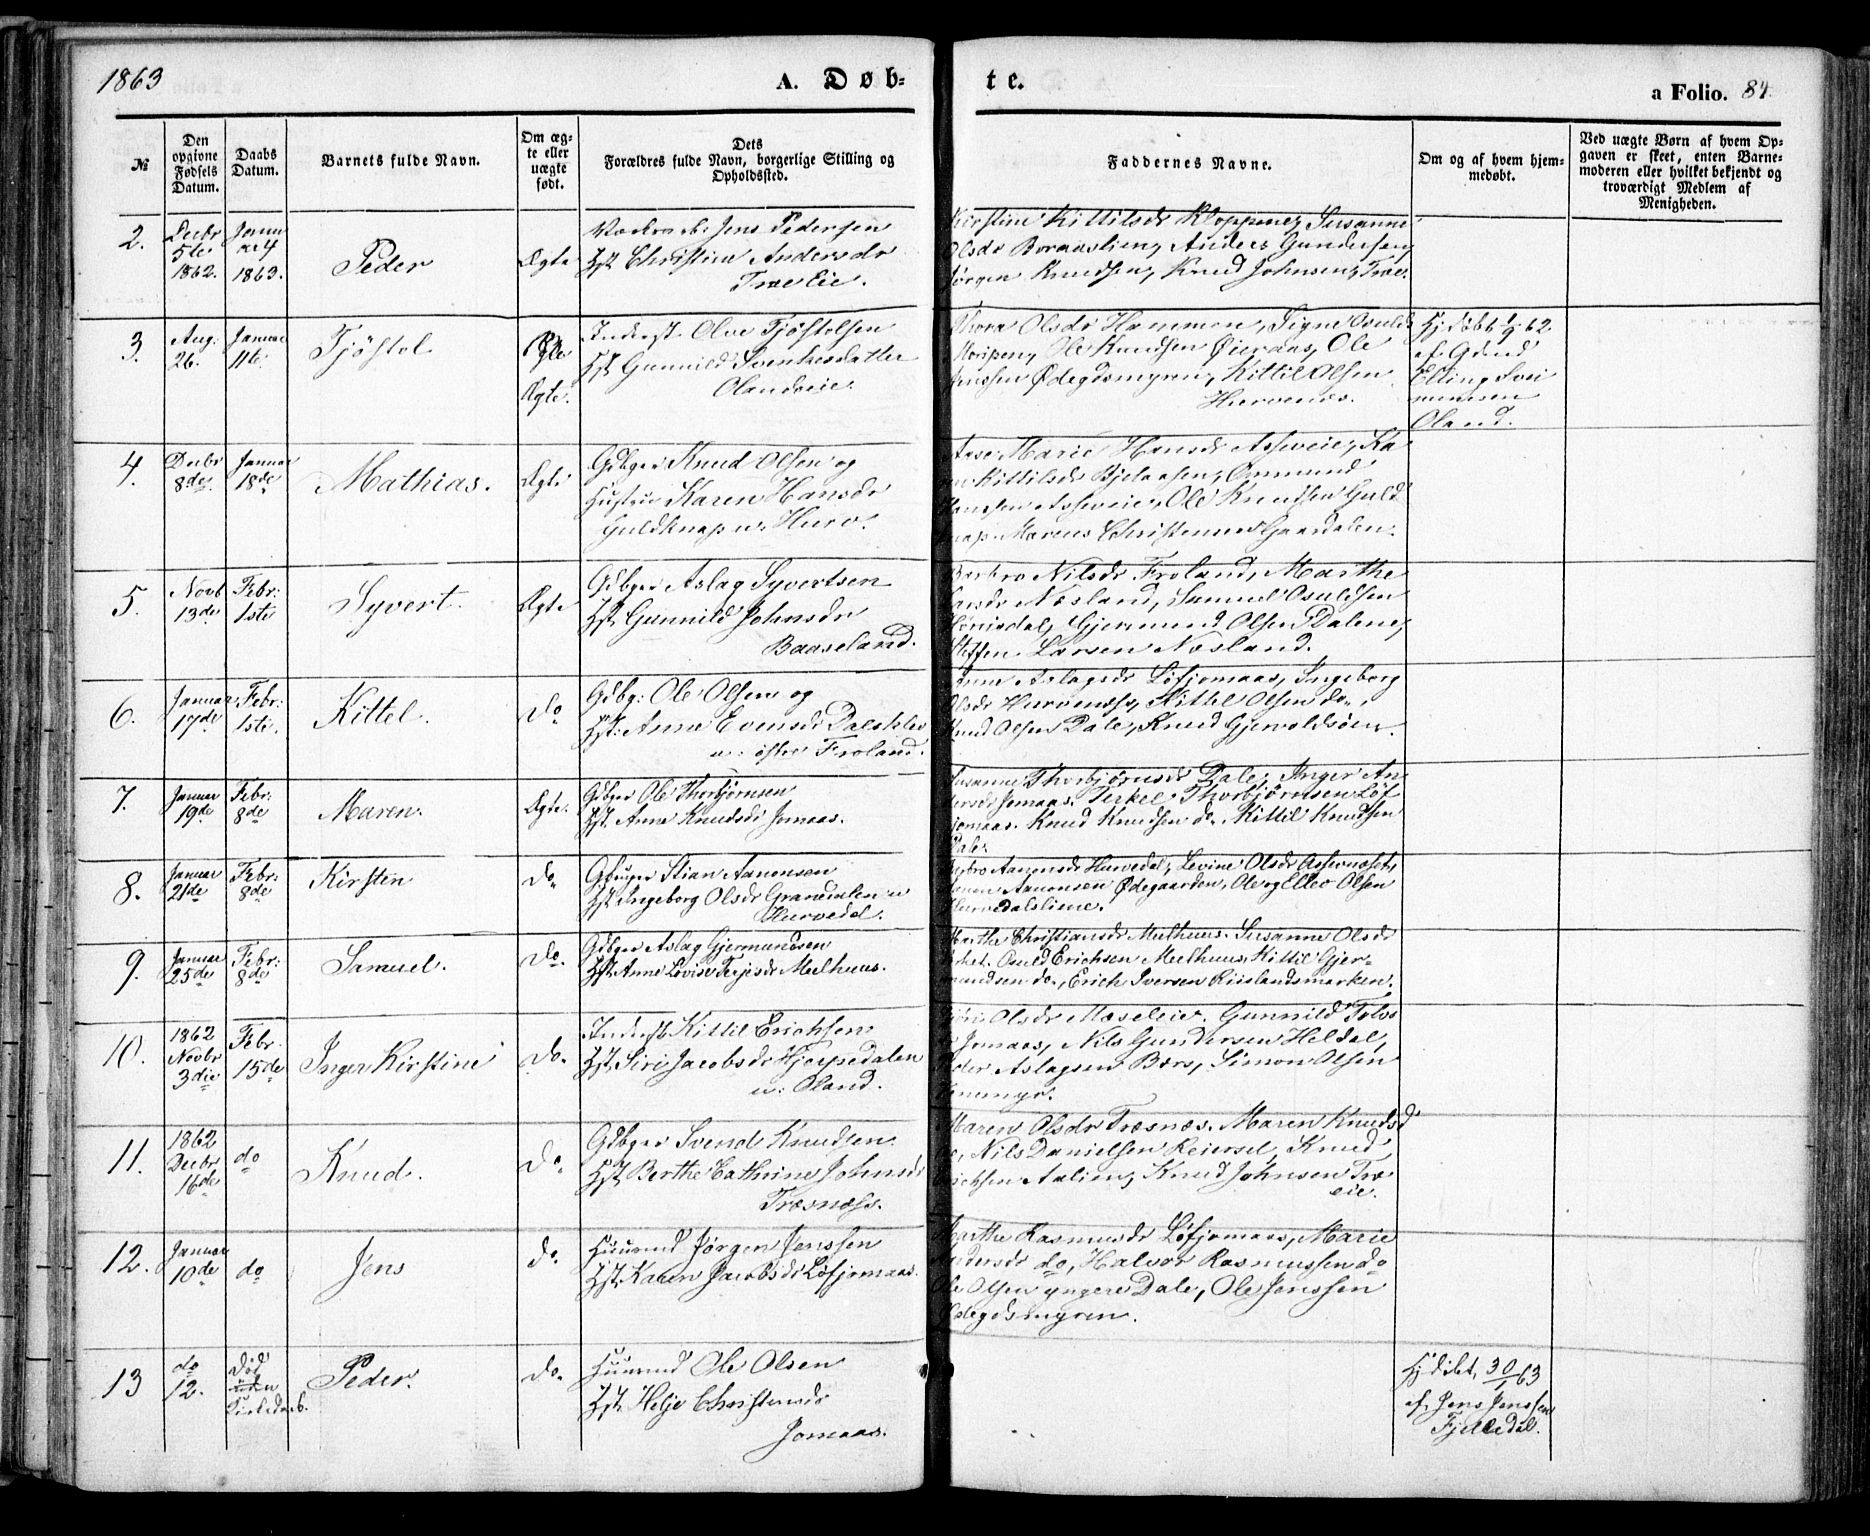 1863
A. Døb-
te.
a Folio. 84.
№
Den opgivne Fødsels Datum.
Daabs Datum.
Barnets fulde Navn.
Om ægte eller uægte født.
Dets Forældres fulde Navn, borgerlige Stilling og Opholdssted.
Faddernes Navne.
Om og af hvem hjemmedøbt.
Ved uægte Børn af hvem Opgaven er skeet, enten Barnemoderen eller hvilket bekjendt og troværdigt Medlem af Menigheden.
2.
Decbr
5te
1862.
Januar 4
1863.
Peder
Ægte
Jens Pedersen
Hst Christine Andersdr
Træ Eie.
Kirstine Kittilsdr Kloppene, Susanne
Olsdr Boraaslien, Anders Gundersen,
Jørgen Knudsen, Knud Johnsen, Træ.
3.
Aug:
26.
Januar
11te.
Tjøstol
Ægte.
Inderst Olve Tjøstolsen
Hst Gunnild Svenkesdatter
Olandseie.
Thora Olsdr Hammen, Signe Osulds
Ole Knudsen Øieraas, Ole
Jenssen Ødegdsmyren, Kittil Olsen
Hurvenes.
Hj. døbt 1/9 62.
af Gdmd
Elling Svei
Oland.
4.
Decbr
8de
Januar
18de
Mathias.
Ægte
Gdbger Knud Olsen og
Hustrue Karen Hansdr
Guldknap u. Hurv.
Aase Marie Hansdr Asseveie, Ka
Kittilsdr Bjelaasen, Ommund
Hanssen Asseveie, Ole Knudsen Guld
knap. Marcus Christensen Gaardalen.
5.
Novb
13de
Febr:
1ste
Syvert.
Ægte
Gdbger Aslag Syvertsen
Hst Gunnild Johnsdr
Baaseland.
Berbro Nilsdr Froland, Marthe
Larsdr Næsland, Samuel Osuldsen
Gjermund Olsen Dalene,
Steffen Larsen Næsland.
6.
Januar
17de
Febr:
1ste.
Kittel.
Do
Gdbg: Ole Olsen og
Hst: Anne Evensdr
u: øster Froland.
Anne Aslagsdr Løfjomaas, Ingeborg
Olsdr Hurvenes, Kittel Olsen do,
Knud Olsen Dale, Knud Gjervoldsøen.
7.
Januar
19de
Febr:
8de
Maren.
Ægte.
Gdbger Ole Thorbjørnsen
Hst. Anne Knudsdr Jomaas.
Susanne Thorbjørnsdr Dale, Inger An
dersdr Jomaas. Terkel Thorbjørnsen Løf
jomaas. Knud Knudsen do. Kittil Knudsen
Dale.
8.
Januar
21de
Febr:
8de
Kirsten
do.
Gbruger Stian Aanonsen
Hst Ingeborg Olsdr u
Hurvedal.
Aanonsdr Hurvedal, Levine Olsdr
Aanon Aanonsen Ødegaarden, Ole og Ellev Olsen
Hurvedalsliene.
9.
Januar
25de
Febr:
8de
Samuel.
Do.
Gdbger Aslag Gjermundsen
Hst. Anne Lovise Terjesdr Mælhuus.
Marthe Christiansdr Mælhuus. Susanne Olsdr
Osuld Erichsen Mælhuus, Kittil Gjer-
mundsen do., Erich Iversen Riislandsmarken.
10.
1862
Novbr
3die
Febr.
15de
Inger Kirstine
Do.
Inderst Kittil Erichsen
Hst Siri Jacobsdr Hjerpedalen
u: Oland.
Olsdr Mæseleie. Gunnild Tolvs
dr Jomaas, Nils Gundersen Heldal,
Peder Aslagsen Børs, Simon Olsen
11.
1862
Decbr
16de
do
Knud.
Do.
Gdbger Svend Knudsen.
Hst Berthe Cathrine Johnsdr
Træsnæss.
Maren Olsdr Træsnæs. Maren Knudsd
do, Nils Danielsen Reiersel, Knud
Erichsen Aalien, Knud Johnsen Træ
eie.
12.
Januar
10de
do
Jens
do.
Huusmd Jørgen Jenssen
Hst. Karen Jacobsdr Løfjomaas.
Marthe Rasmusdr Løfjomaas, Marie
do, Halvor Rasmussen do
Ole Olsen yngere Dale, Ole Jenssen
Ødegdsmyren.
13
do
12.
Død
uden
Kirkedaab.
Peder.
Do.
Huusmd Ole Olsen
Hst Helje Christensdr
Jomaas.
Hj.døbt, 30/1 63
af Jens Jenssen
Fjelledal.